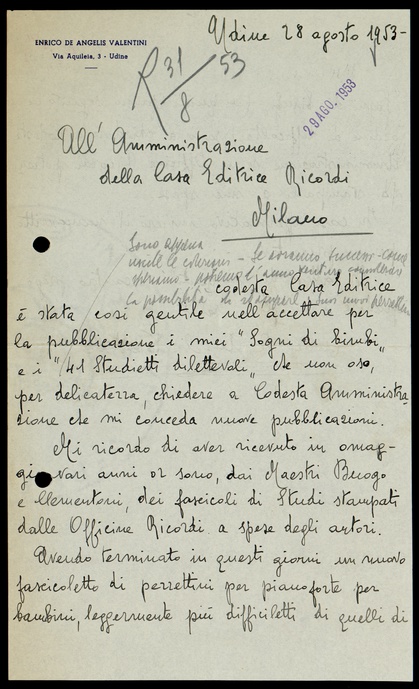 ENRICO DE ANGELIS VALENTINI
Via Aquileia, 3 - Udine
Udine 28 agosto 1953-
R 31/8 53
29 AGO. 1953
All' Amministrazione
della Casa Editrice Ricordi
Milano
Sono appena
uscite le edizioni - Se avranno successo - come
speriamo - potremo l'anno venturo considerare
la possibilità di stampare i suoi nuovi pezzettini
codesta Casa Editrice
è stata così gentile nell'accettare per
la pubblicazione i miei "Sogni di bimbi"
e i "41 Studietti dilettevoli" che non oso,
per delicatezza, chiedere a Codesta Amministra-
zione che mi conceda nuove pubblicazioni.
Mi ricordo di aver ricevuto in omag-
gio, vari anni or sono, dai Maestri Buogo
e Clementoni, dei fascicoli di Studi stampati
dalle Officine Ricordi a spese degli autori.
Avendo terminato in questi giorni un nuovo
fascicoletto di pezzettini per pianoforte per
bambini, leggermente più difficiletti di quelli di